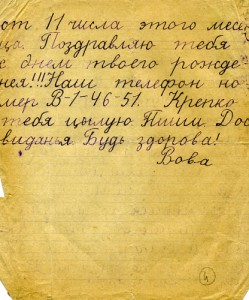 от 11 числа этого месе
ца. Поздравляю тебя
с днем твоего рожде
нея!!! Наш телефон но
мер В-1-46-51. Крепко
тебя цылую. Пиши. Дос
виданья Будь здорова!
Вова
4